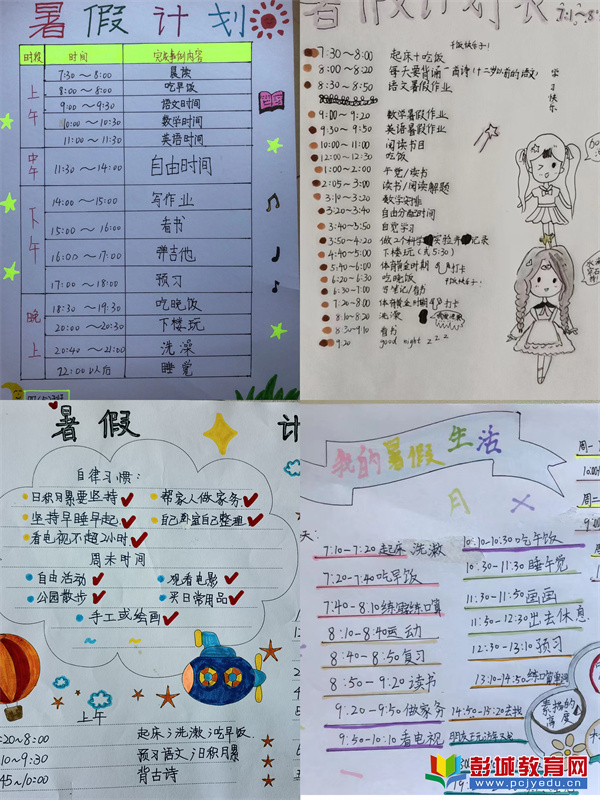 暑假计划
时段 时间 完成事例内容
上午
7:30～8:00 晨读
8:00～8:00 吃早饭
9:00～9:30 语文时间
10:00～10:30 数学时间
11:00～11:30 英语时间
中午
11:30～14:00 自由时间
下午
14:00～15:00 写作业
15:00～16:00 看书
16:00～17:00 弹吉他
17:00～18:00 预习
晚上
18:30～19:30 吃晚饭
20:00～20:30 下楼玩
20:40～21:00 洗澡
22:00以后 睡觉
暑假计划表
7:30～8:00 起床+吃饭
8:00～8:20 每天要背诵一首诗
8:30～8:50 语文暑假作业
学习快乐
9:00～9:20 数学暑假作业
9:30～9:50 英语暑假作业
10:00～11:00 阅读书目
12:00～12:30 吃饭
1:00～2:00 午觉/读书
2:05～3:00 读书/阅读解题
3:10～3:20
3:20～3:40 自由分配时间
3:40～3:50 自觉学习
3:50～4:20
4:40～5:00 下楼玩(或5:30)
5:40～6:00
6:20～6:30 吃晚饭
6:30～7:00
7:20～8:00
8:10～8:20 洗漱
8:30～9:10 看书
9:20 good night z z z
暑假 计
自律习惯:
日积月累要坚持 帮家人做家务
坚持早睡早起 自己卧室自己整理
看电视不超2小时
周末时间
自由活动 观看电影
公园散步 买日常用品
手工或绘画
上午
:20～8:00 起床;洗漱;吃早饭.
:10～9:30 预习语文;日积月累
45～10:00 背古诗
我的暑假生活
月
天:
7:10-7:20起床 洗漱
7:20-7:40吃早饭
7:40-8:10练字练口算
8:10-8:40运动
8:40-8:50复习
8:50-9:20读书
9:20-9:50做家务
9:50-10:10看电视
10:10-10:30吃午饭
10:30-11:30睡午觉
11:30-11:50画画
11:50-12:30出去休息
12:30-13:10预习
13:10-14:50
14:50-15:20去找
周一
10:00
周二
9:00
彭城教育网
www.pcjyedu.cn